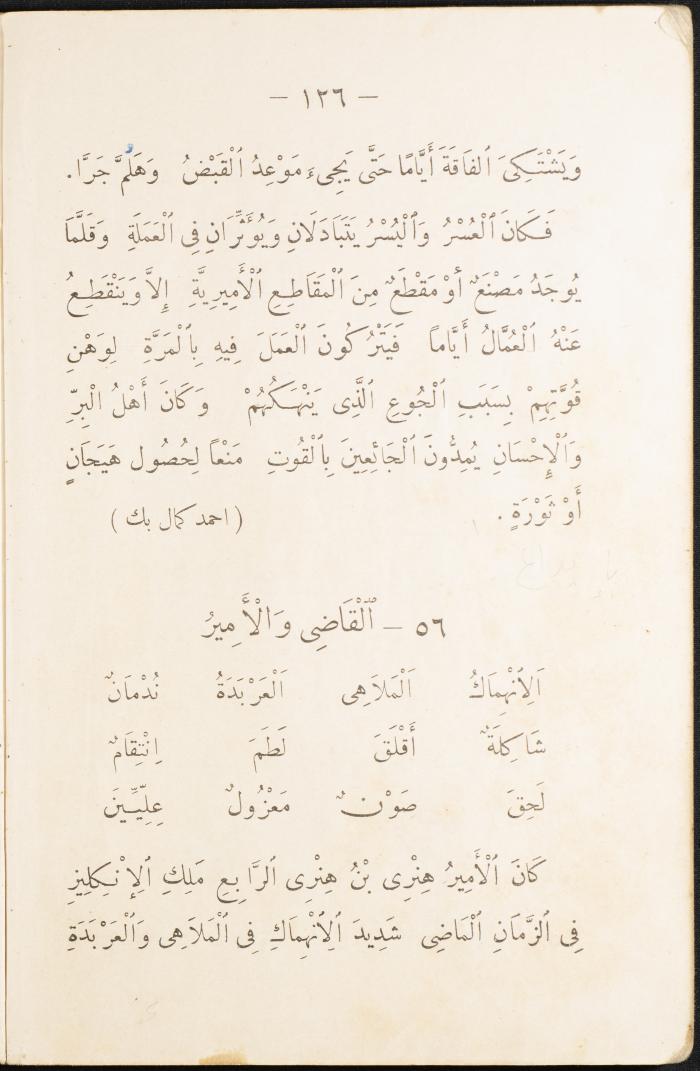 — ١٢٦ —
وَيَشْتَكِىَ ٱلْفَاقَةَ أَيَّامًا حَتَّى يَجِىءَ مَوْعِدُ ٱلْقَبْضُ وَهَلُمَّ جَرًّا .
فَكَانَ ٱلْعُسْرُ وَٱلْيُسْرُ يَتَبَادَلَانِ وَيُوَثِّرَانِ فِى ٱلْعَمَلَةِ وَقَلَّمَا
يُوجَدُ مَصْنَعٌ أَوْ مَقْطَعٌ مِنَ ٱلْمَقَاطِعِ ٱلْأَمِيرِيَّةِ إِلاَّ وَيَنْقَطِعُ
عَنْهُ ٱلْعُمَّالُ أَيَّاماً فَيَتْرُكُونَ ٱلْعَمَلَ فِيهِ بِٱلْمَرَّةِ لِوَهْنِ
قُوَّتِهِمْ بِسَبَبِ ٱلْجُوعِ ٱلَّذِى يَنْهَكُهُمْ وَكَانَ أَهْلُ الْبِرِّ
وَٱلْإِحْسَانِ يُمِدُّونَ ٱلْجَائِعِينَ بِٱلْقُوتِ مَنْعاً لِحُصُولِ هَيَجَانٍ
أَوْ ثَوْرَةٍ . (احمد كمال بك)
٥٦ – ٱلْقَاضِى وَٱلْأَمِيرُ
اَلِٱنْهِمَاكُ اَلْمَلَاهِى اَلْعَرْبَدَةُ نُدْمَانٌ
شَاكِلَةٌ أَقْلَقَ لَطَمَ اِنْتِقَامٌ
لَحِقَ صَوْنٌ مَعْزُولٌ عِلِّيِّينَ
كَانَ ٱلْأَمِيرُ هِنْرِى بْنُ هِنْرِى ٱلرَّابِعِ مَلِكِ ٱلْإِنْكِلِيزِ
فِى ٱلزَّمَانِ ٱلْمَاضِى شَدِيدَ ٱلِٱنْهِمَاكِ فِى ٱلْمَلَاهِى وَٱلْعَرْبَدَةِ